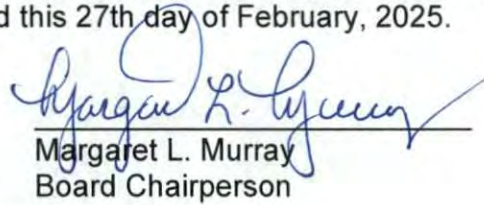 d this 27th day of February, 2025.
Margaret L. Murray
Margaret L. Murray
Board Chairperson